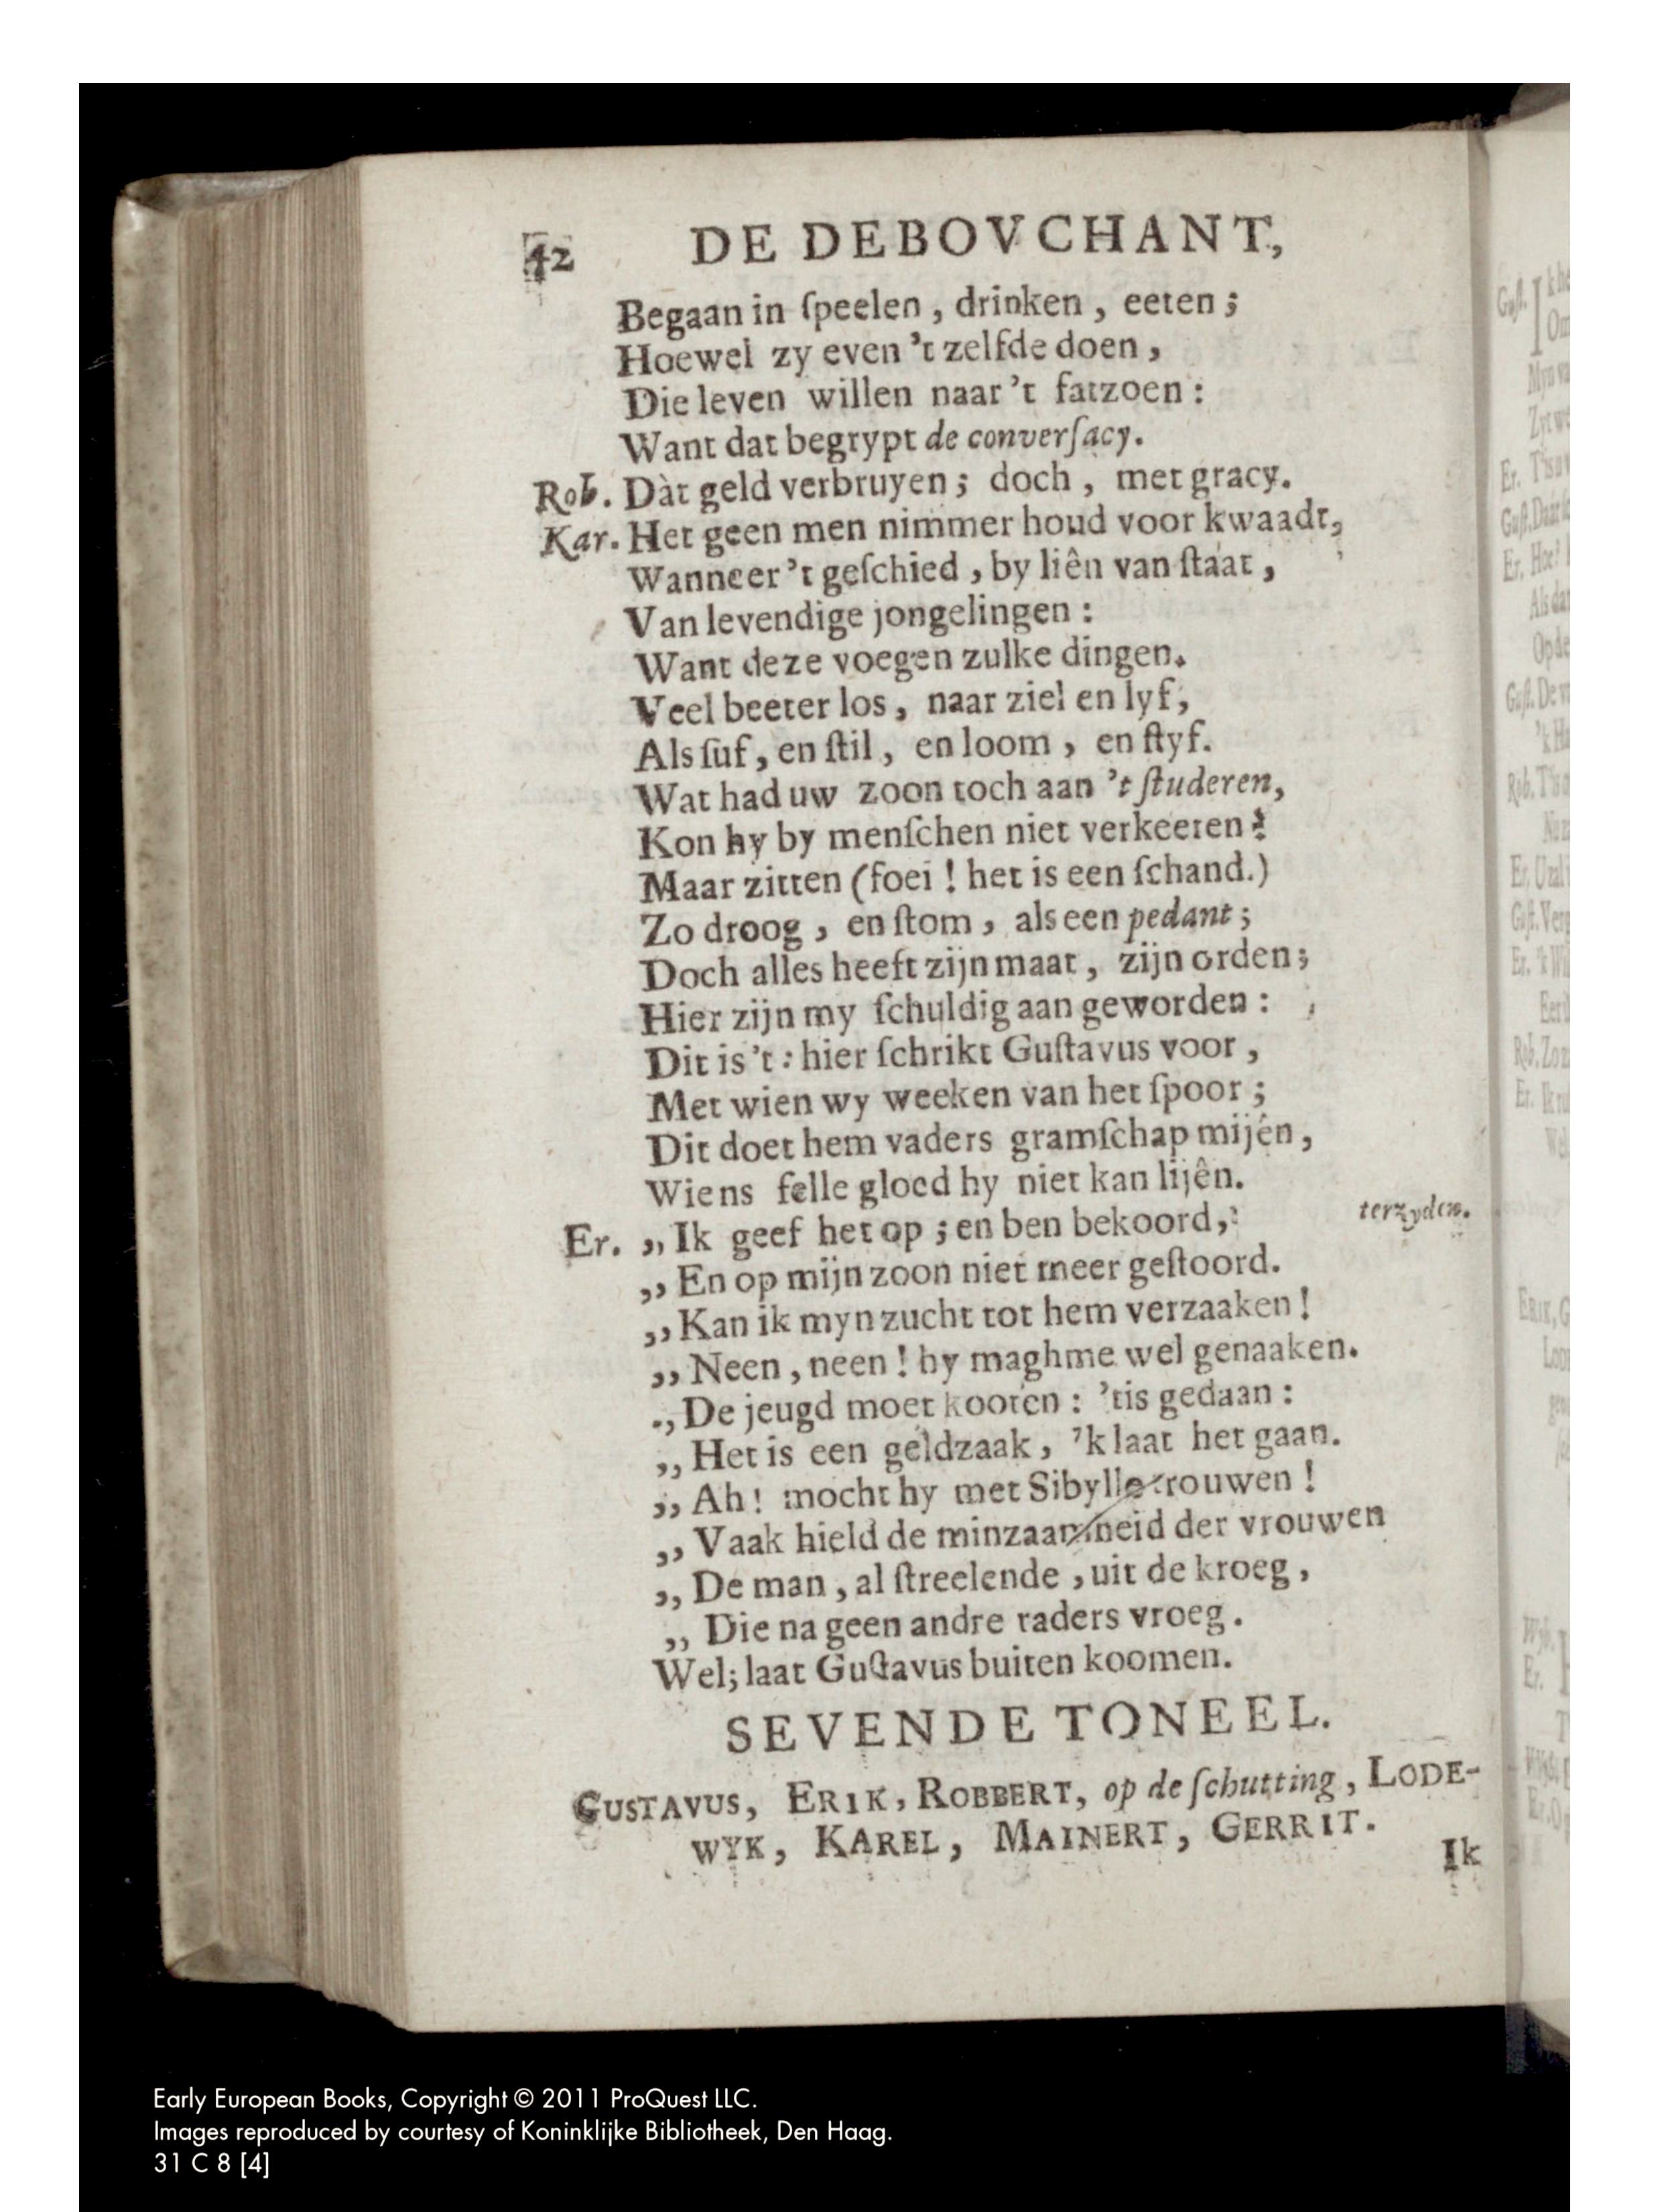 42 DE DEBOVCHANT,
Begaan in ſpeelen, drinken, eeten;
Hoewel zy even 't zelfde doen,
Die leven willen naar 't fatzoen:
Want dat begrypt de converſacy.
Rob. Dàt geld verbruyen; doch, met gracy.
Kar. Het geen men nimmer houd voor kwaadt,
Wanneer 't geſchied, by liên van ſtaat,
Van levendige jongelingen:
Want deze voegen zulke dingen.
Veel beeter los, naar ziel en lyf,
Als ſuf, en ſtil, en loom, en ſtyf.
Wat had uw zoon toch aan 't ſtuderen,
Kon hy by menſchen niet verkeeren?
Maar zitten (foei! het is een ſchand.)
Zo droog, en ſtom, als een pedant;
Doch alles heeft zijn maat, zijn orden;
Hier zijn my ſchuldig aan geworden:
Dit is 't: hier ſchrikt Guſtavus voor,
Met wien wy weeken van het ſpoor;
Dit doet hem vaders gramſchap mijén,
Wiens felle gloed hy niet kan lijên.
Er. „ Ik geef het op; en ben bekoord, terzyden.
„ En op mijn zoon niet meer geſtoord.
„ Kan ik myn zucht tot hem verzaaken!
„ Neen, neen! hy magh me wel genaaken.
., De jeugd moet kooten: 'tis gedaan:
„ Het is een geldzaak, 'k laat het gaan.
„ Ah! mocht hy met Sibylle trouwen!
„ Vaak hield de minzaamheid der vrouwen
„ De man, al ſtreelende, uit de kroeg,
„ Die na geen andre raders vroeg.
Wel; laat Guſtavus buiten koomen.
SEVENDE TONEEL.
GUSTAVUS, ERIK, ROBBERT, op de ſchutting, LODE-
WYK, KAREL, MAINERT, GERRIT.
Ik
Early European Books, Copyright © 2011 ProQuest LLC.
Images reproduced by courtesy of Koninklijke Bibliotheek, Den Haag.
31 C 8 [4]